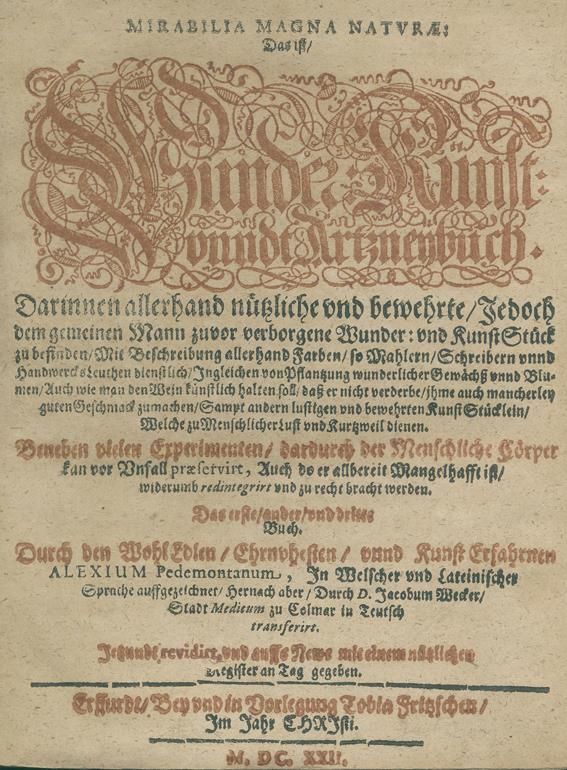 MIRABILIA MAGNA NATVRÆ:
Das ist/
Wunder: Kunst:
vnndt Artzneybuch.
Darinnen allerhand nützliche vnd bewehrte/Jedoch
dem gemeinen Mann zuvor verborgene Wunder: vnd KunstStück
zu befinden/Mit Beschreibung allerhand Farben/so Mahlern/Schreibern vnnd
Handwercks Leuthen dienstlich/Ingleichen von Pflantzung wunderlicher Gewächß vnnd Blu-
men/Auch wie man den Wein künstlich halten soll/daß er nicht verderbe/jhme auch mancherley
guten Geschmack zumachen/Sampt andern lustigen vnd bewehrten Kunst Stücklein/
Welche zu Menschlicher Lust vnd Kurtzweil dienen.
Beneben vielen Experimenten/dardurch der Menschliche Cörper
kan vor Vnfall præsetvirt, Auch do er allbereit Mangelhafft ist/
widerumb redintegrirt vnd zu recht bracht werden.
Das erste/ander/vnd dritte
Buch.
Durch den Wohl Edlen/Ehrnvhesten/vnnd Kunst Erfahrnen
ALEXIUM Pedemontanum, In Welscher vnd Lateinischer
Sprache auffgezeichnet/Hernach aber/Durch D. Jacobum Wecker/
Stadt Medicum zu Colmar in Teutsch
transferirt.
Jetzundt revidirt, vnd auffs Newe mit einem nützlichen
Register an Tag gegeben.
Erffurdt/Bey vnd in Vorlegung Tobiæ Fritzschen/
Im Jahr CHRIsti.
M. DC. XXII.